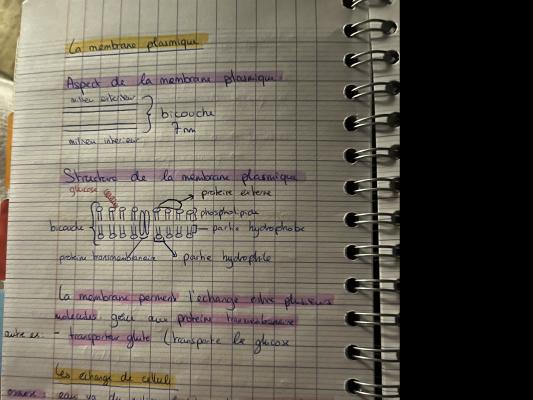 La membrane plasmique
Aspect de la membrane plasmique
milieu exterieur
bicouche
7 nm
milieu interieur
Structure de la membrane plasmique
glucose
proteine externe
phospholipide
bicouche
partie hydrophobe
proteine transmembranaire
partie hydrophile
La membrane perment l'échange entre plusieurs
molecules grâce aux proteine transmembranaire
autre ex: - transporteur glute (transporte le glucose
Les échange de cellul
osmose: eau va du